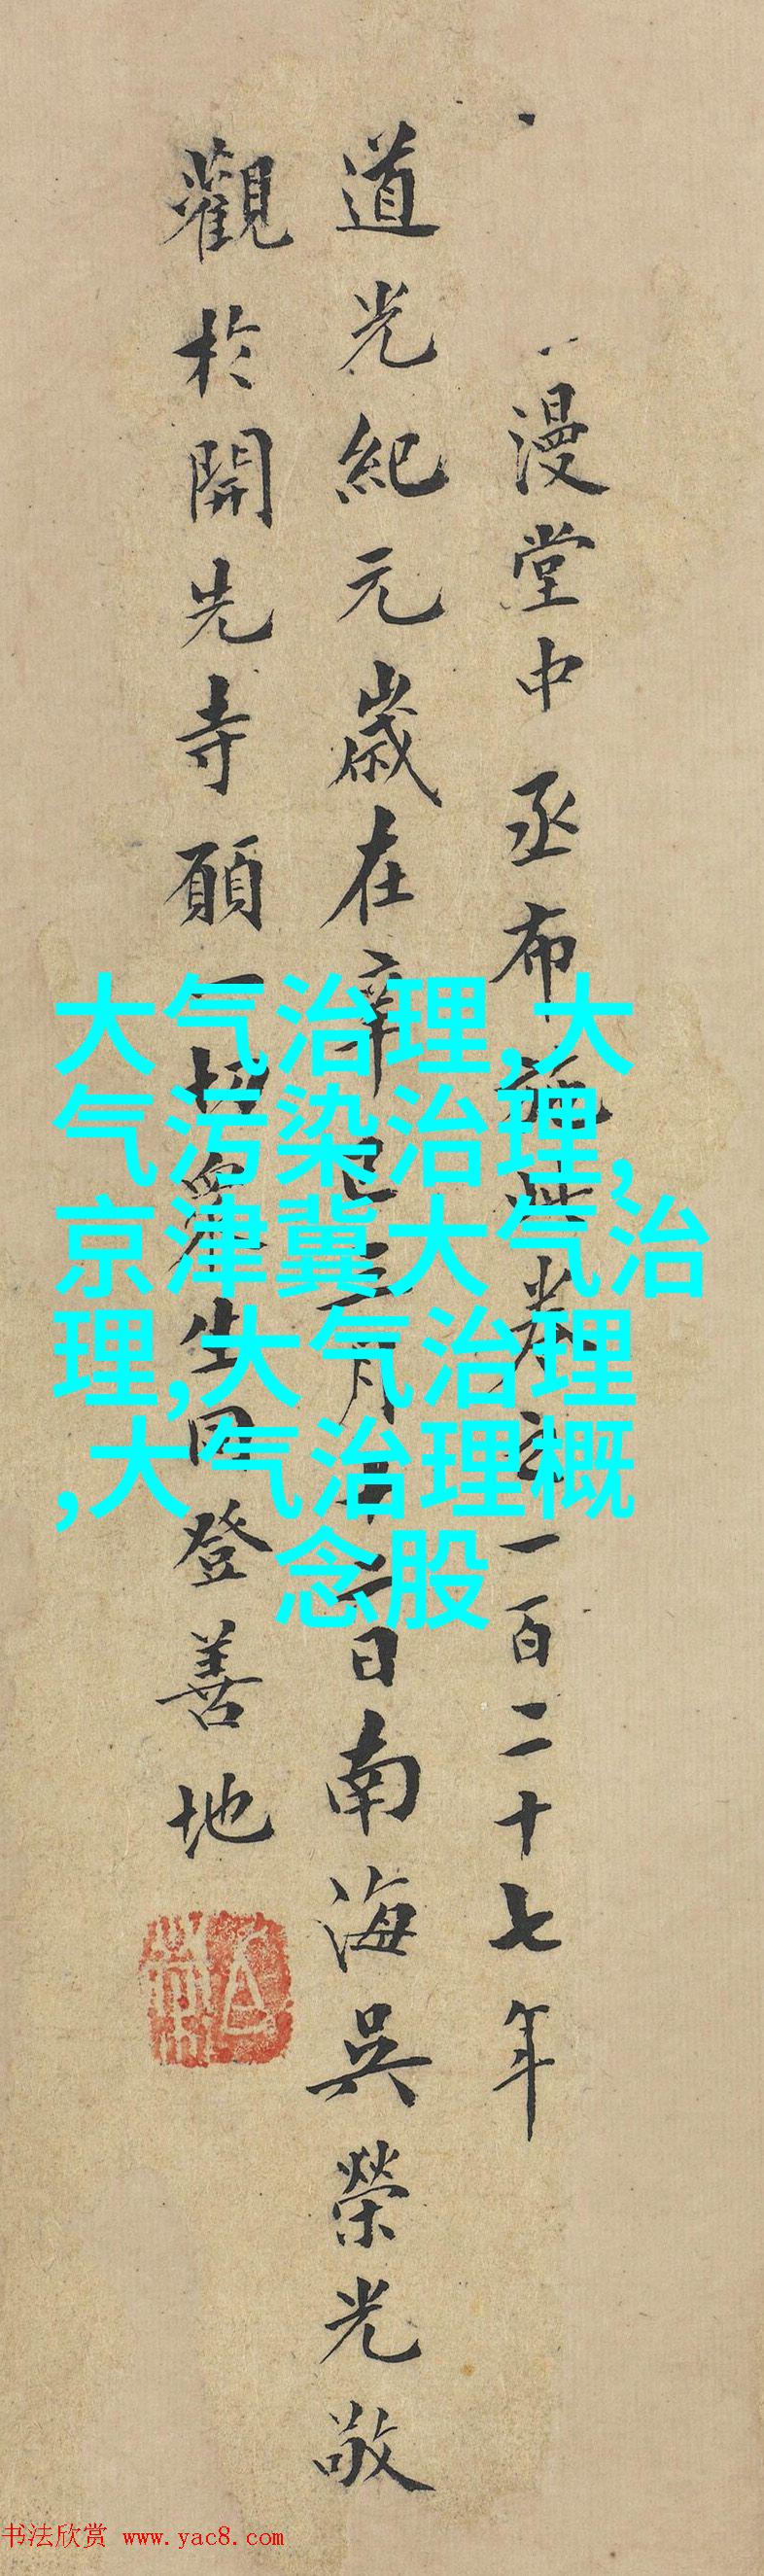 漫堂中丞布施此卷之一百二十七年
道光紀元歲在辛巳三月十二日南海吳榮光敬
觀於開先寺願一切眾生同登善地
大气治理,大
气污染治理,
京津冀大气治
理,大气治理
,大气治理概
念股
书法欣赏 www.yac8.com